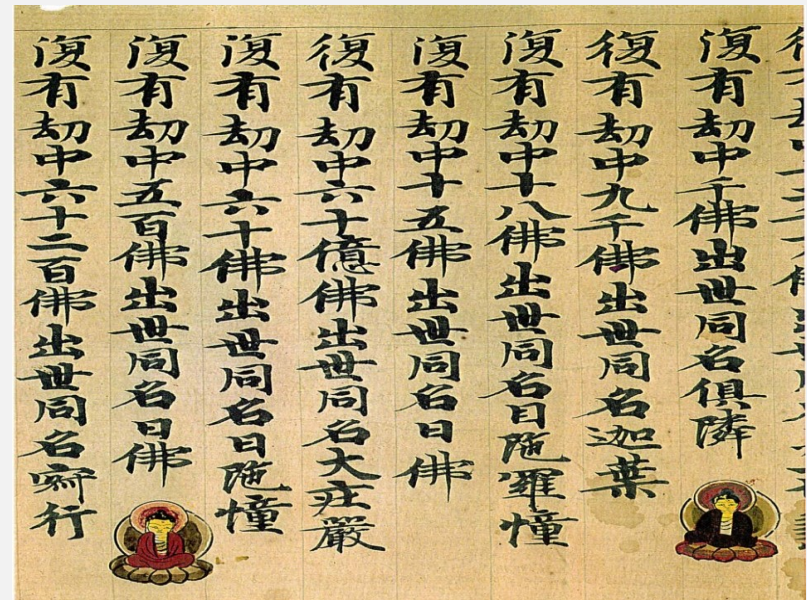 復有劫中千佛出世同名俱隣
復有劫中九千佛出世同名迦葉
復有劫中十八佛出世同名日陁羅幢
復有劫中十五佛出世同名日佛
復有劫中六十億佛出世同名大莊嚴
復有劫中六十佛出世同名日陁幢
復有劫中五百佛出世同名日佛
復有劫中六十二百佛出世同名寂行